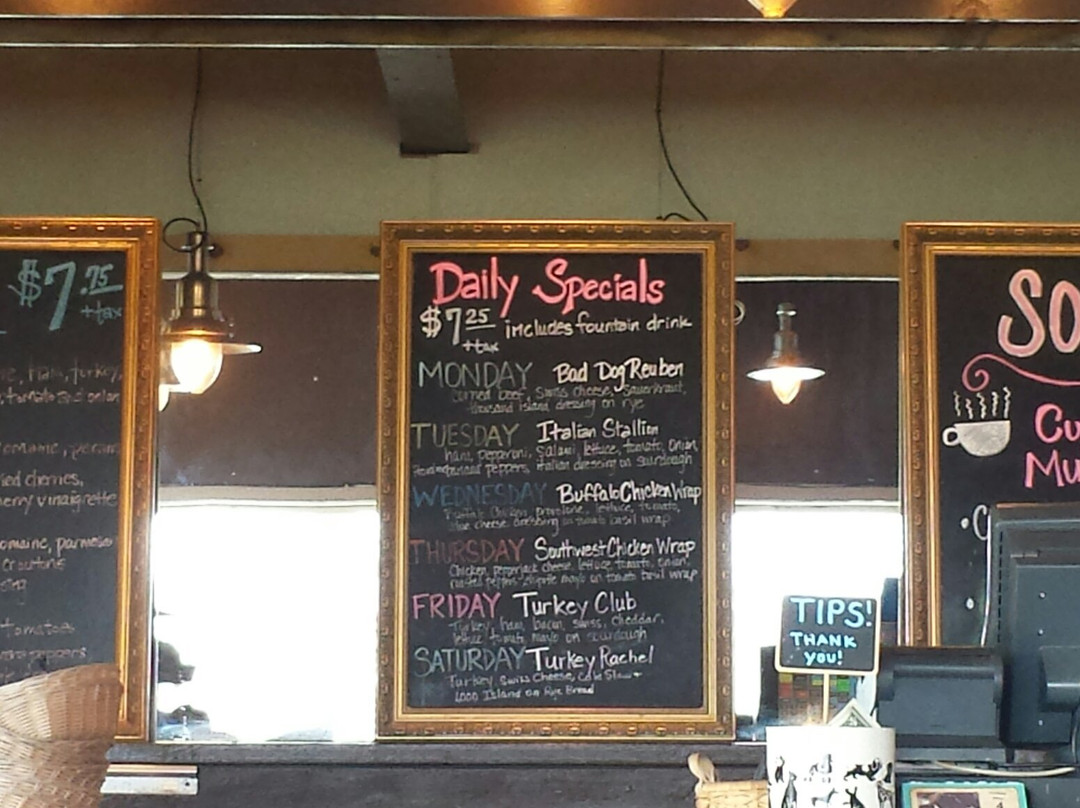 $7.75
+tax
ham, turkey,
romaine,
dried cherries,
cherry vinaigrette
romaine, parmesan
croutons
tomatoes
peppers
Daily Specials
$7.25 includes fountain drink
+tax
MONDAY Bad Dog Reuben
corned beef, swiss cheese, sauerkraut,
thousand island dressing on rye
TUESDAY Italian Stallion
ham, pepperoni, salami, lettuce, tomato, onion,
peppers, italian dressing on sourdough
WEDNESDAY Buffalo Chicken Wrap
Buffalo Chicken, provolone, lettuce, tomato,
blue cheese dressing on tomato basil wrap
THURSDAY Southwest Chicken Wrap
Chicken, pepperjack cheese, lettuce, tomato, onion,
roasted peppers, chipotle mayo on tomato basil wrap
FRIDAY Turkey Club
Turkey, ham, bacon, swiss, cheddar,
lettuce, tomato, mayo on sourdough
SATURDAY Turkey Rachel
Turkey, Swiss Cheese, Cole Slaw +
1000 Island on Rye Bread
SO
Cu
Mu
TIPS!
THANK
you!